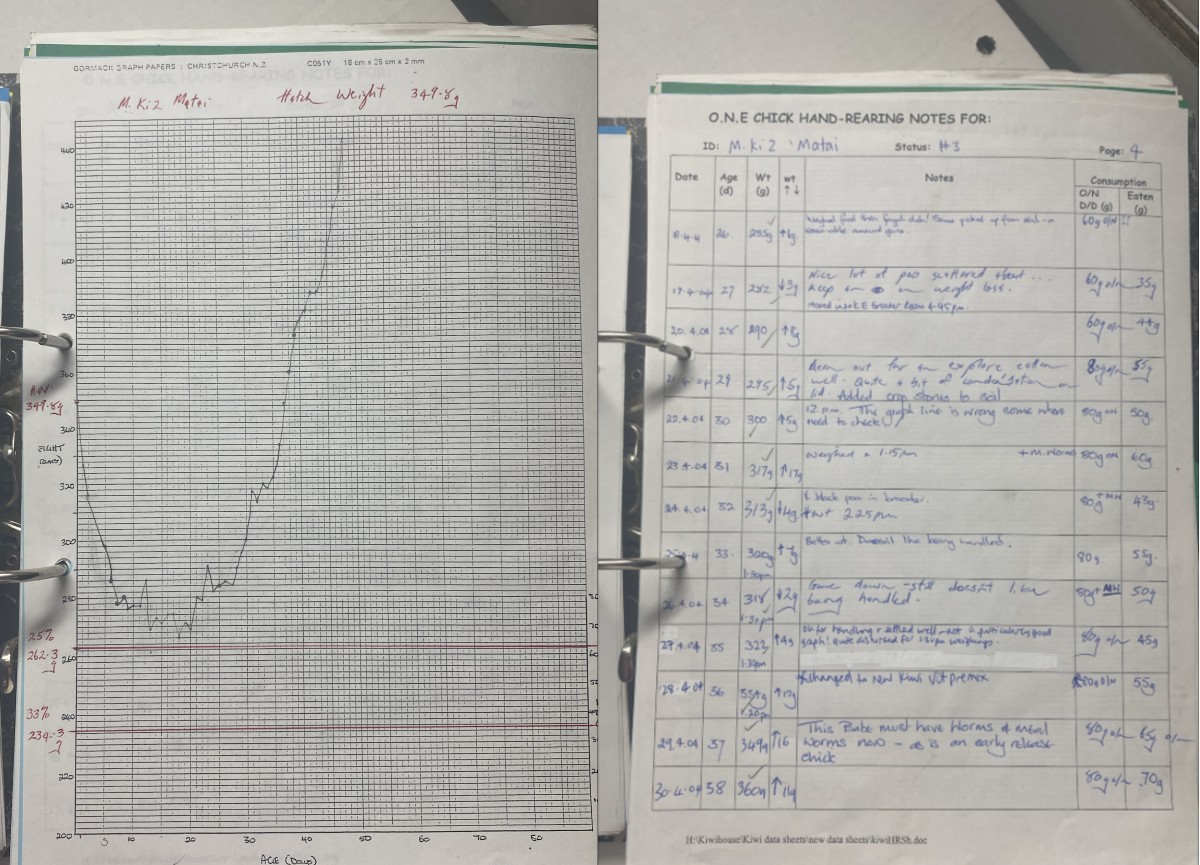 GORMACK GRAPH PAPERS : CHRISTCHURCH N.Z. CO5TY 18 cm x 25 cm x 2 mm
M. Ki 2 Matai Hatch Weight 349.8g
440
420
400
380
360
349.8g
340
(GRAMS)
320
300
280
25%
262.3g
260
33%
240
234.3g
220
200
5 10 20 30 40 50 60 70 80
AGE (DAYS)
O.N.E CHICK HAND-REARING NOTES FOR:
ID: M. Ki 2 'Matai Status: #3 Page: 4
Date Age (d) Wt (g) wt ↑↓ Notes Consumption
O/N D/D (g) Eaten (g)
26 285g ↑6g 60g O/N !!
27 282 ↓3g Nice lot of poo scattered about ... 60g o/n 35g
Keep an on weight loss.
Brooder Room 4.45pm.
20.4.04 28 290 ↑8g 60g o/n 44g
29 295 ↑5g Been out for an explore eaten 80g o/n 55g
well. Quite a bit of condensation on
lid. Added crop stones to soil
22.4.04 30 300 ↑5g 12 p.m. The graph line is wrong some where 80g o/n 50g
need to check
23.4.04 31 317g ↑17g Weighed @ 1.15pm + m.worms 80g o/n 60g
24.4.04 32 313g ↓4g black poo in brooder. 80g + MW 43g
Hwt 2.25pm
33 ↑7g Doesn't like being handled. 80g 55g
1.30pm
26.4.04 34 318 ↓2g Gone down - still doesn't like 80g + MW 50g
1.30pm being handled.
27.4.04 35 322 ↑4g Ok for handling + settled well - not a particularly good 80g o/n 45g
1.30pm graph! quite disturbed for 1.30pm weighups.
28.4.04 36 Changed to New Kiwi Vit premix 80g O/N 55g
1.20pm
29.4.04 37 349g ↑16 This Babe must have Worms & Meal 80g o/n 65g o/n
Worms now - as is an early release
chick
30.4.04 38 360g ↑11g 80g o/n 70g
H:\Kiwihouse\Kiwi data sheets\new data sheets\kiwiHRSh.doc